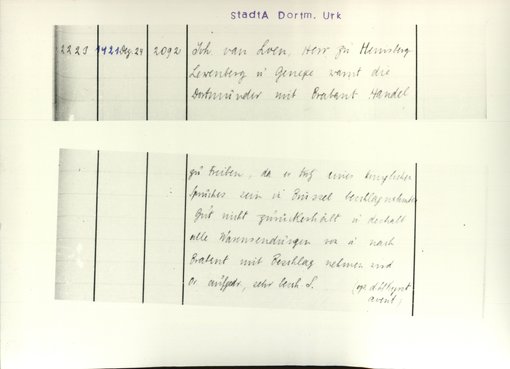 StadtA Dortm. Urk
2223 1421 Dez. 24 2092 Joh. van Loen, Herr zu Heinsberg
Lewenberg u Genepe warnt die
Dortmunder mit Brabant Handel
zu treiben, da er trotz eines königlichen
Spruches sein in Brüssel beschlagnahmtes
Gut nicht zurückerhält u deshalb
alle Warensendungen von u nach
Brabant mit Beschlag nehmen wird
Or. aufgedr., sehr besch. S.